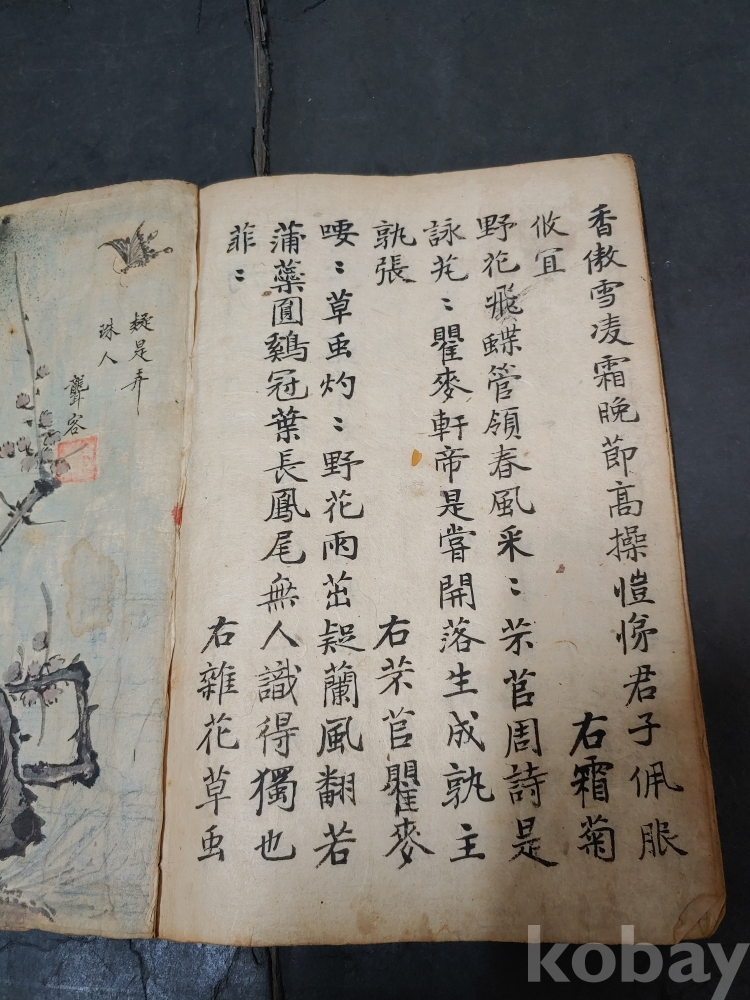 香傲雪凌霜晚節高操愷悌君子佩服
攸宜
右霜菊
野花飛蝶管領春風采〻芣苢周詩是
詠芃〻瞿麥軒帝是嘗開落生成孰主
孰張
右芣苢瞿麥
喓〻草虫灼〻野花雨茁疑蘭風翻若
蒲蘂圓鷄冠葉長鳳尾無人識得獨也
菲〻
右雜花草虫
疑是弄
珠人
龔容
kobay